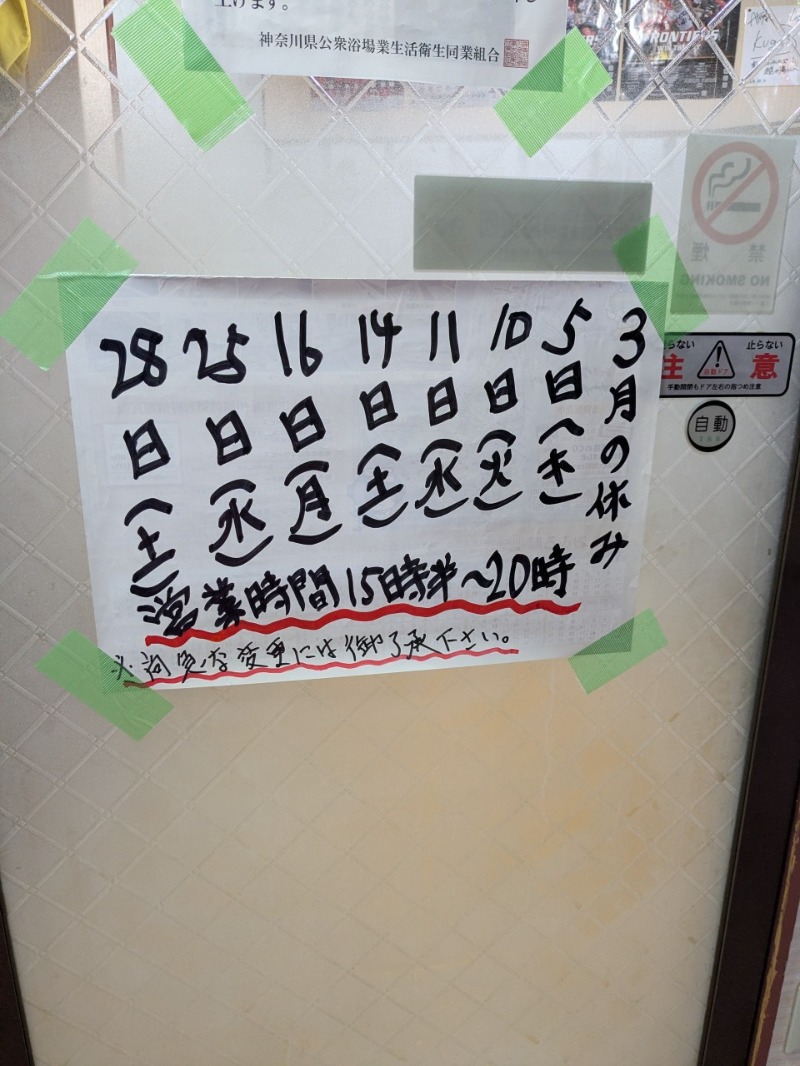 上げます。
神奈川県公衆浴場業生活衛生同業組合
FRONTIERS
禁煙
NO SMOKING
3月の休み
5日(木)
10日(火)
11日(水)
14日(土)
16日(月)
25日(水)
28日(土)
営業時間15時半〜20時
※尚急な変更には御了承下さい。
らない 止らない
注 意
自動ドア
手動開閉もドア左右の指つめ注意
自動